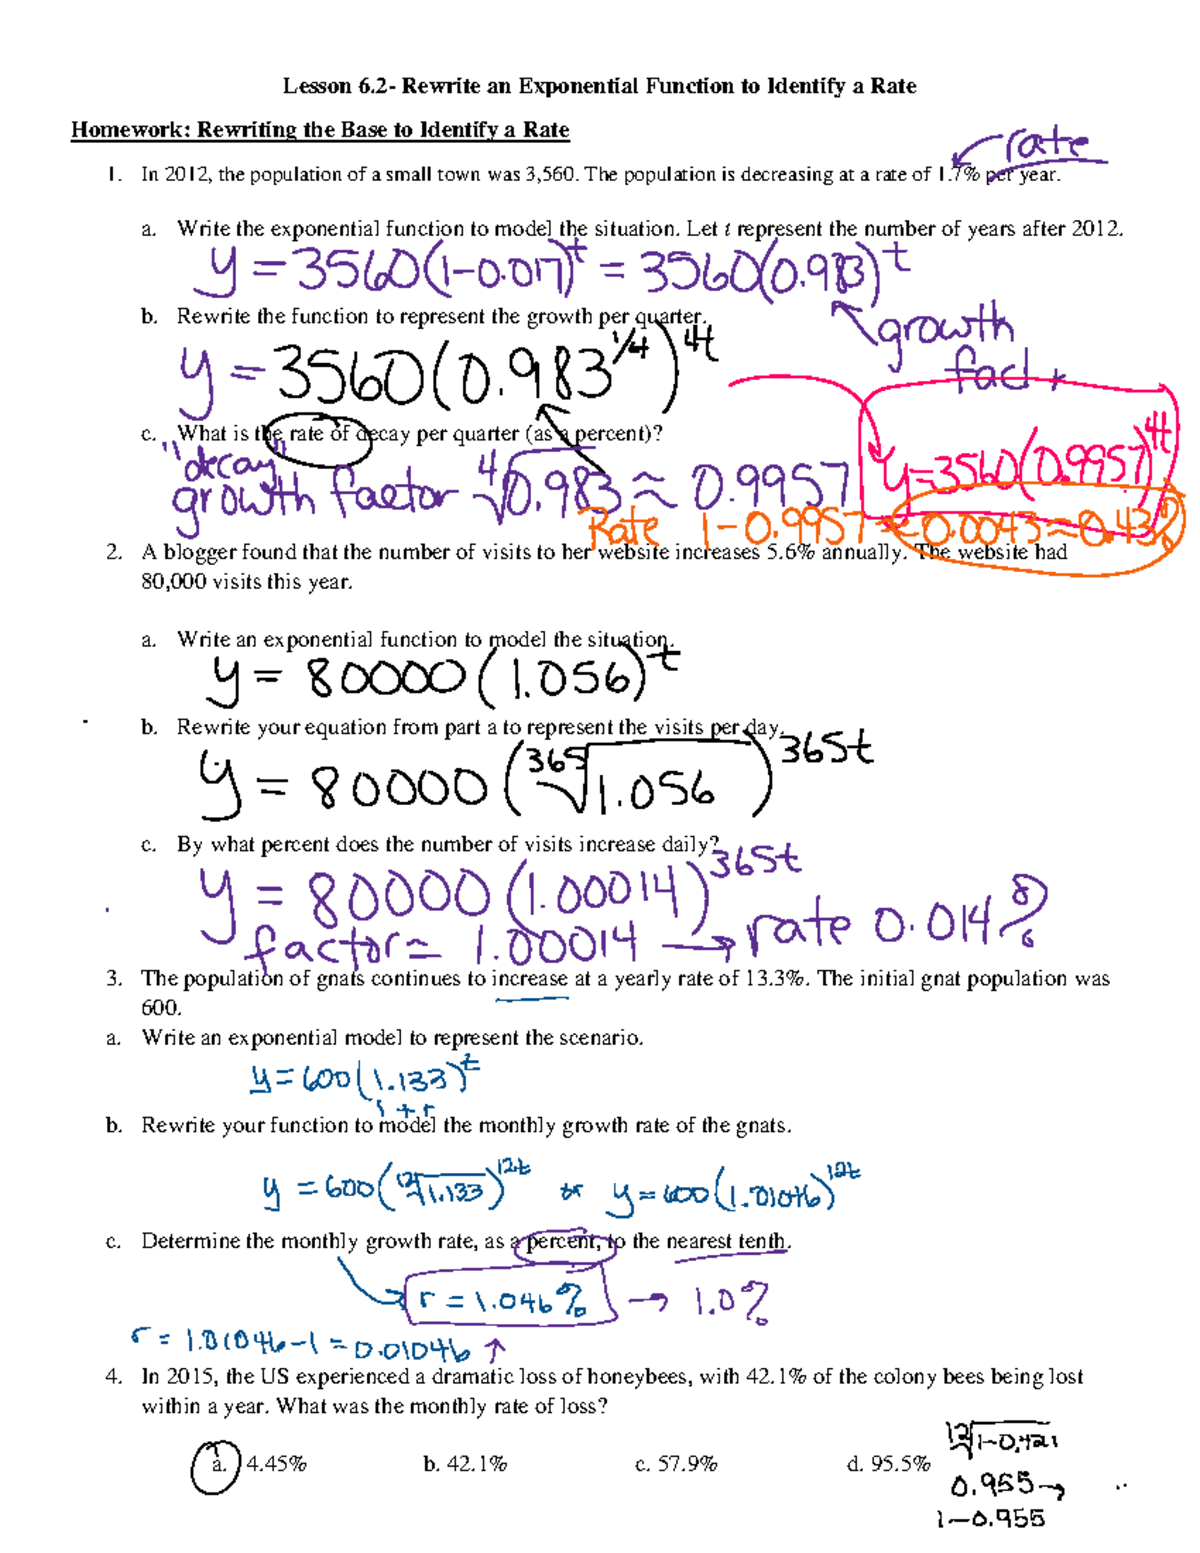 Lesson 6.2- Rewrite an Exponential Function to Identify a Rate
Homework: Rewriting the Base to Identify a Rate
rate
1. In 2012, the population of a small town was 3,560. The population is decreasing at a rate of 1.7% per year.
a. Write the exponential function to model the situation. Let t represent the number of years after 2012.
y = 3560(1-0.017)^t = 3560(0.983)^t
b. Rewrite the function to represent the growth per quarter.
growth
fact
y = 3560(0.983^1/4)^4t
c. What is the rate of decay per quarter (as a percent)?
"decay"
growth factor ∜0.983 ≈ 0.9957
y=3560(0.9957)^4t
Rate 1-0.9957 = 0.0043 ≈ 0.43%
2. A blogger found that the number of visits to her website increases 5.6% annually. The website had
80,000 visits this year.
a. Write an exponential function to model the situation.
y = 80000(1.056)^t
b. Rewrite your equation from part a to represent the visits per day.
y = 80000(³⁶⁵√1.056)^365t
c. By what percent does the number of visits increase daily?
y = 80000(1.00014)^365t
factor = 1.00014 → rate 0.014%
3. The population of gnats continues to increase at a yearly rate of 13.3%. The initial gnat population was
600.
a. Write an exponential model to represent the scenario.
y = 600(1.133)^t
1 + r
b. Rewrite your function to model the monthly growth rate of the gnats.
y = 600(¹²√1.133)^12t or y = 600(1.01046)^12t
c. Determine the monthly growth rate, as a percent, to the nearest tenth.
r = 1.046% → 1.0%
r = 1.01046-1 = 0.01046 ↑
4. In 2015, the US experienced a dramatic loss of honeybees, with 42.1% of the colony bees being lost
within a year. What was the monthly rate of loss?
¹²√1-0.421
a. 4.45% b. 42.1% c. 57.9% d. 95.5%
0.955→
1-0.955